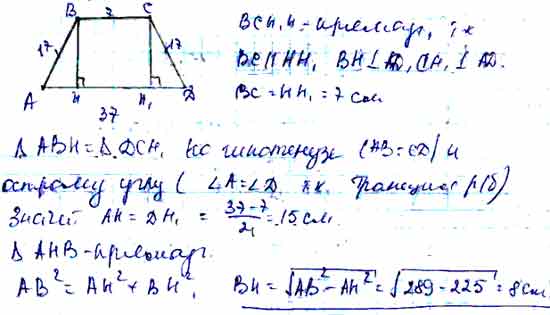 B 7 C
17 17
A H H₁ D
37
BCH₁H - прямоуг, т.к
BC || HH₁ BH⊥AD, CH₁⊥AD.
BC = HH₁ = 7 см
Δ ABH = Δ DCH₁ по гипотенузе (AB = CD) и
острому углу ( ∠A = ∠D т.к. трапеция р/б)
Значит AH = DH₁ = (37-7)/2 = 15 см.
Δ AHB - прямоуг.
AB² = AH² + BH², BH = √AB² - AH² = √289 - 225 = 8 см